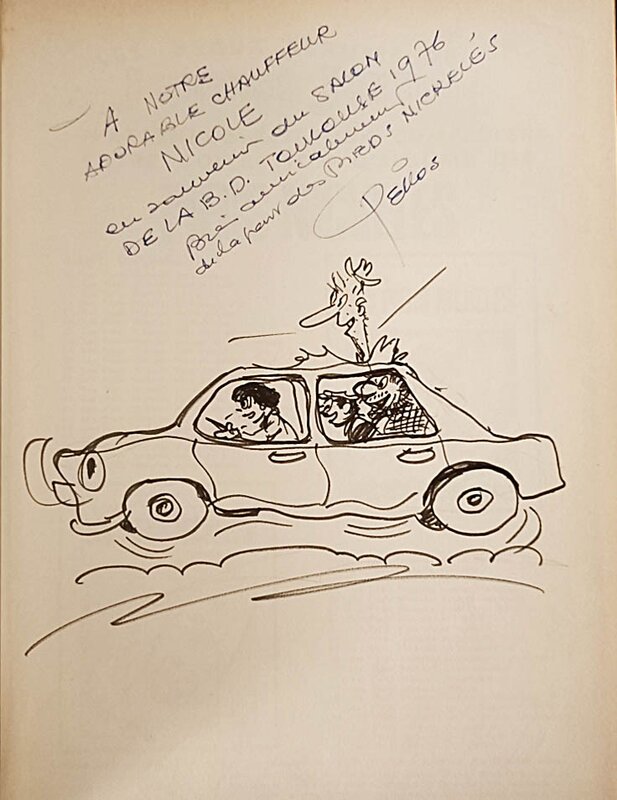 A NOTRE
ADORABLE CHAUFFEUR
NICOLE
en souvenir du SALON
DE LA B.D. TOULOUSE 1976
Bien amicalement
de la part des PIEDS NICKELÉS
PELLOS